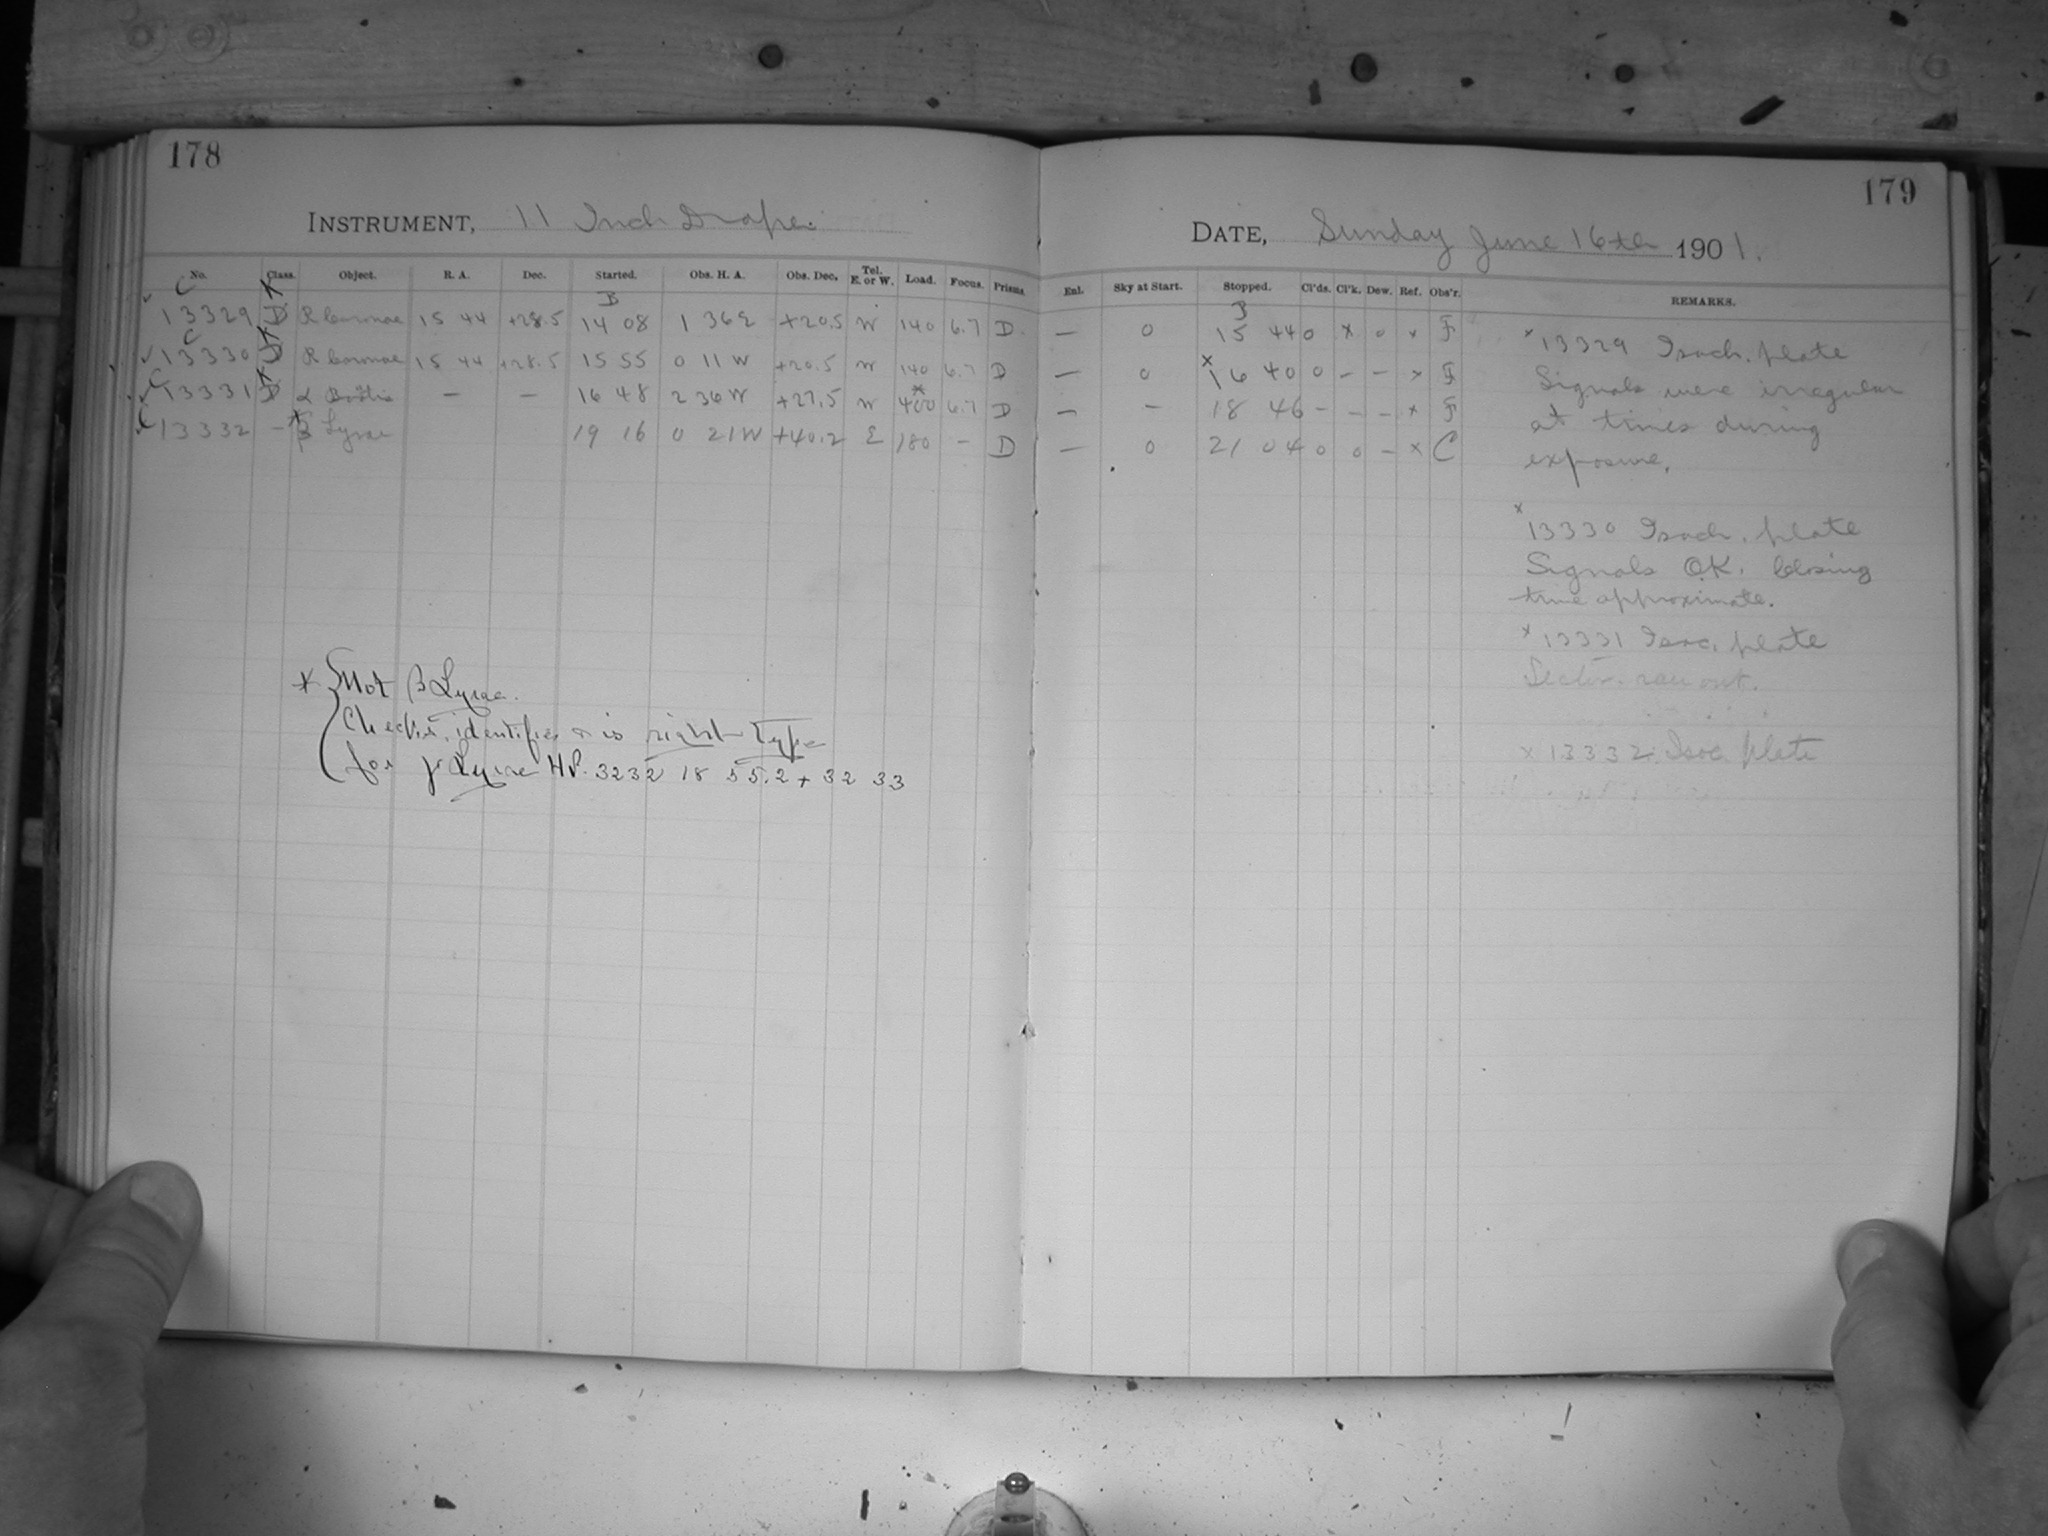 178
INSTRUMENT, 11 Inch Draper
No. Class. Object. R. A. Dec. Started. Obs. H. A. Obs. Dec. Tel. E. or W. Load. Focus. Prisms.
C
B
13329 D R Coronae 15 44 +28.5 14 08 1 36 E +20.5 W 140 6.7 D
C
13330 D R Coronae 15 44 +28.5 15 55 0 11 W +20.5 W 140 6.7 D
C
13331 D α Boötis — — 16 48 2 36 W +27.5 W 400 6.7 D
C
13332 — β Lyrae 19 16 0 21 W +40.2 E 180 — D
* Not β Lyrae.
Checks, identifies & is right Type
for γ Lyrae HP. 3232 18 55.2 + 32 33
179
DATE, Sunday June 16th 1901.
Enl. Sky at Start. Stopped. Cl'ds. Cl'k. Dew. Ref. Obs'r. REMARKS.
— 0 15 44 0 x 0 x F
— 0 x 16 40 0 — — x F
— — 18 46 — — — x F
— 0 21 04 0 0 — x C
x 13329 Isoch. plate
Signals were irregular
at times during
exposure.
x 13330 Isoch. plate
Signals O.K. Closing
time approximate.
x 13331 Isoc. plate
Sector ran out.
x 13332. Isoc. plate